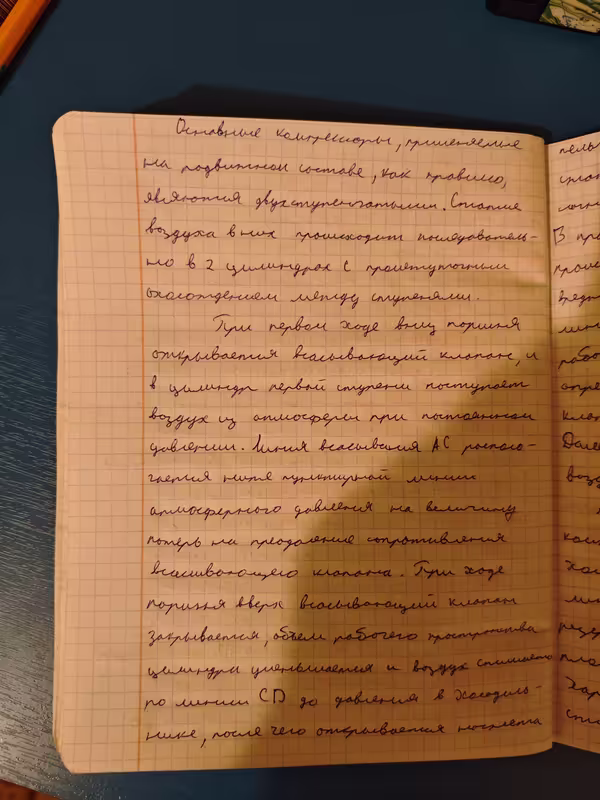 Основные компрессоры, применяемые
на подвижном составе, как правило,
являются двухступенчатыми. Сжатие
воздуха в них происходит последователь-
но в 2 цилиндрах с промежуточным
охлаждением между ступенями.
При первом ходе вниз поршня
открывается всасывающий клапан, и
в цилиндр первой ступени поступает
воздух из атмосферы при постоянном
давлении. Линия всасывания AC распола-
гается ниже пунктирной линии
атмосферного давления на величину
потерь на преодоление сопротивления
всасывающего клапана. При ходе
поршня вверх всасывающий клапан
закрывается, объем рабочего пространства
цилиндра уменьшается и воздух сжимается
по линии CD до давления в холодиль-
нике, после чего открывается
пель
В
воз